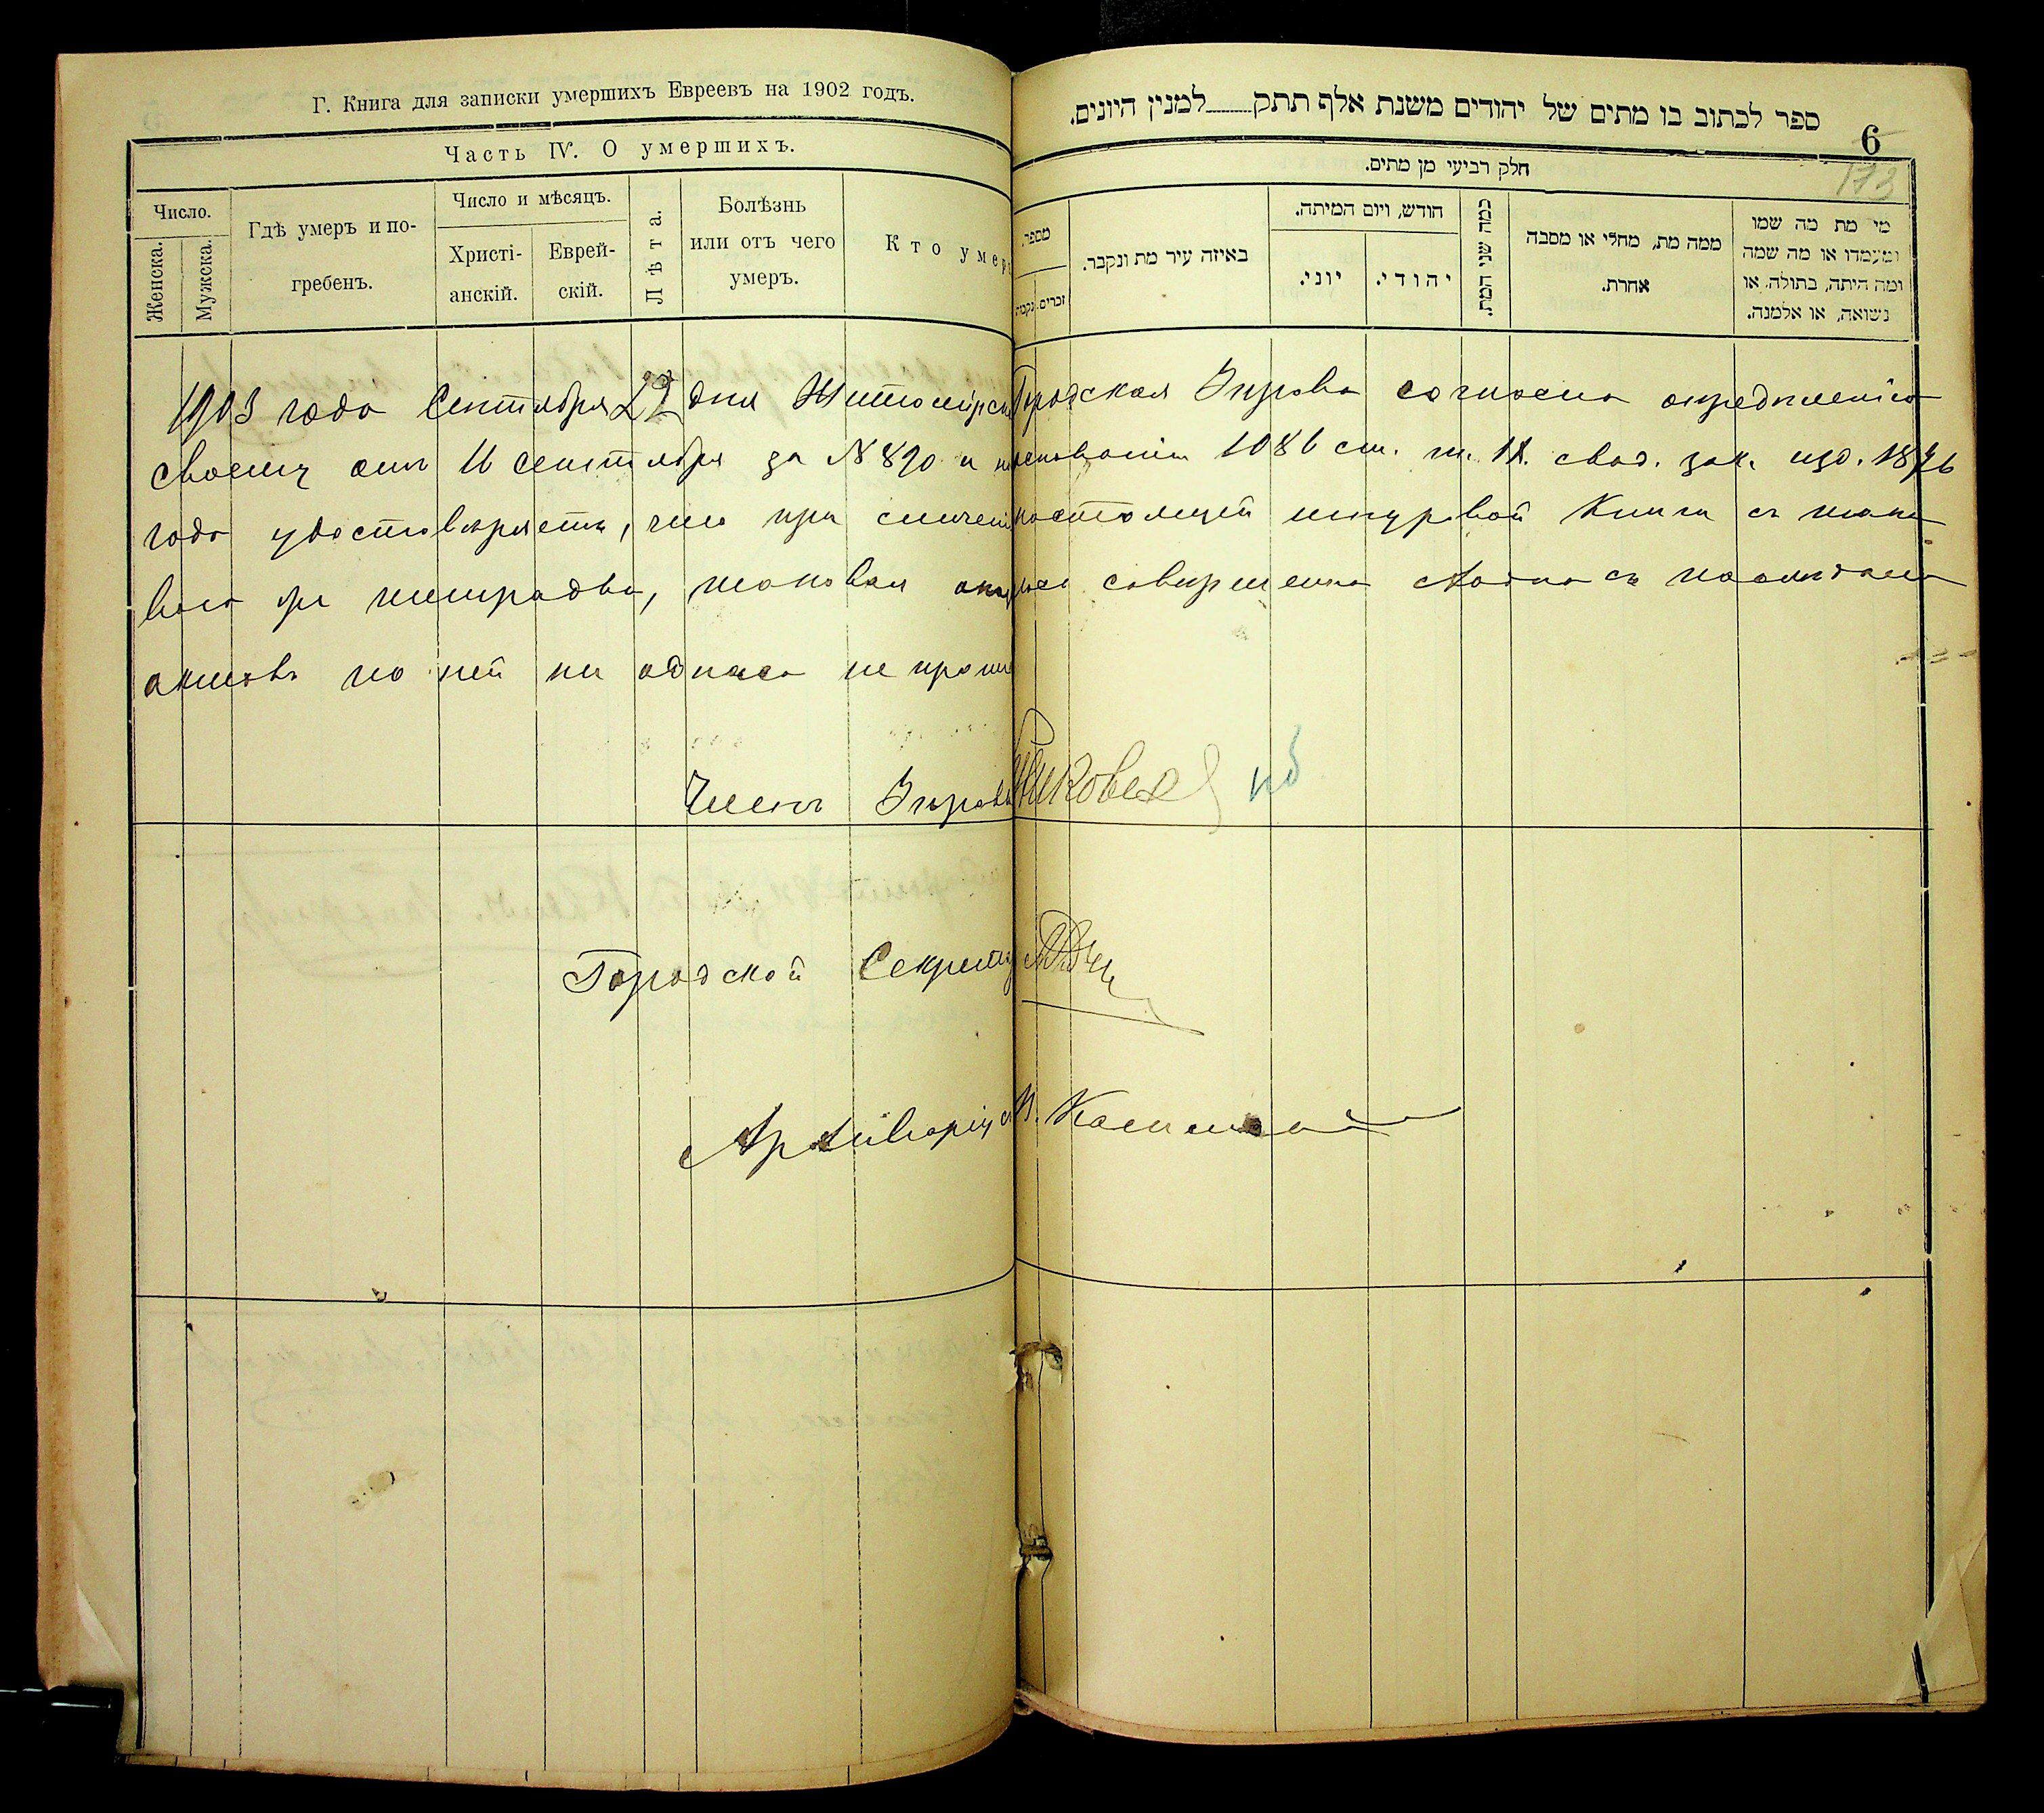 Г. Книга для записки умершихъ Евреевъ на 1902 годъ.
Часть IV. О умершихъ.
Число.
Женска.
Мужска.
Гдѣ умеръ и по-
гребенъ.
Число и мѣсяцъ.
Христі-
анскій.
Еврей-
скій.
Лѣта.
Болѣзнь
или отъ чего
умеръ.
Кто умер
ספר לכתוב בו מתים של יהודים משנת אלף תתק למנין היונים.
6
173
חלק רביעי מן מתים.
מספר.
זכרים.
באיזה עיר מת ונקבר.
חודש, ויום המיתה.
יוני.
יהודי.
כמה שני המת.
ממה מת, מחלי או מסבה
אחרת.
מי מת מה שמו
ומעמדו או מה שמה
ומה היתה, בתולה, או
נשואה, או אלמנה.
1903 года Сентября 22 дня Житомирск Городская Управа согласно определенію
своему отъ 11 сентября за № 890 и на основаніи 1086 ст. т. IX. свод. зак. изд. 1876
года удостовѣряетъ, что при сличеніи настоящей шнуровой Книги съ тако
вою же тетрадью, таковая оказалась совершенно сходна съ
актовъ по ней ни одного не
Членъ Управы
Городской Секретарь
Архиваріусъ